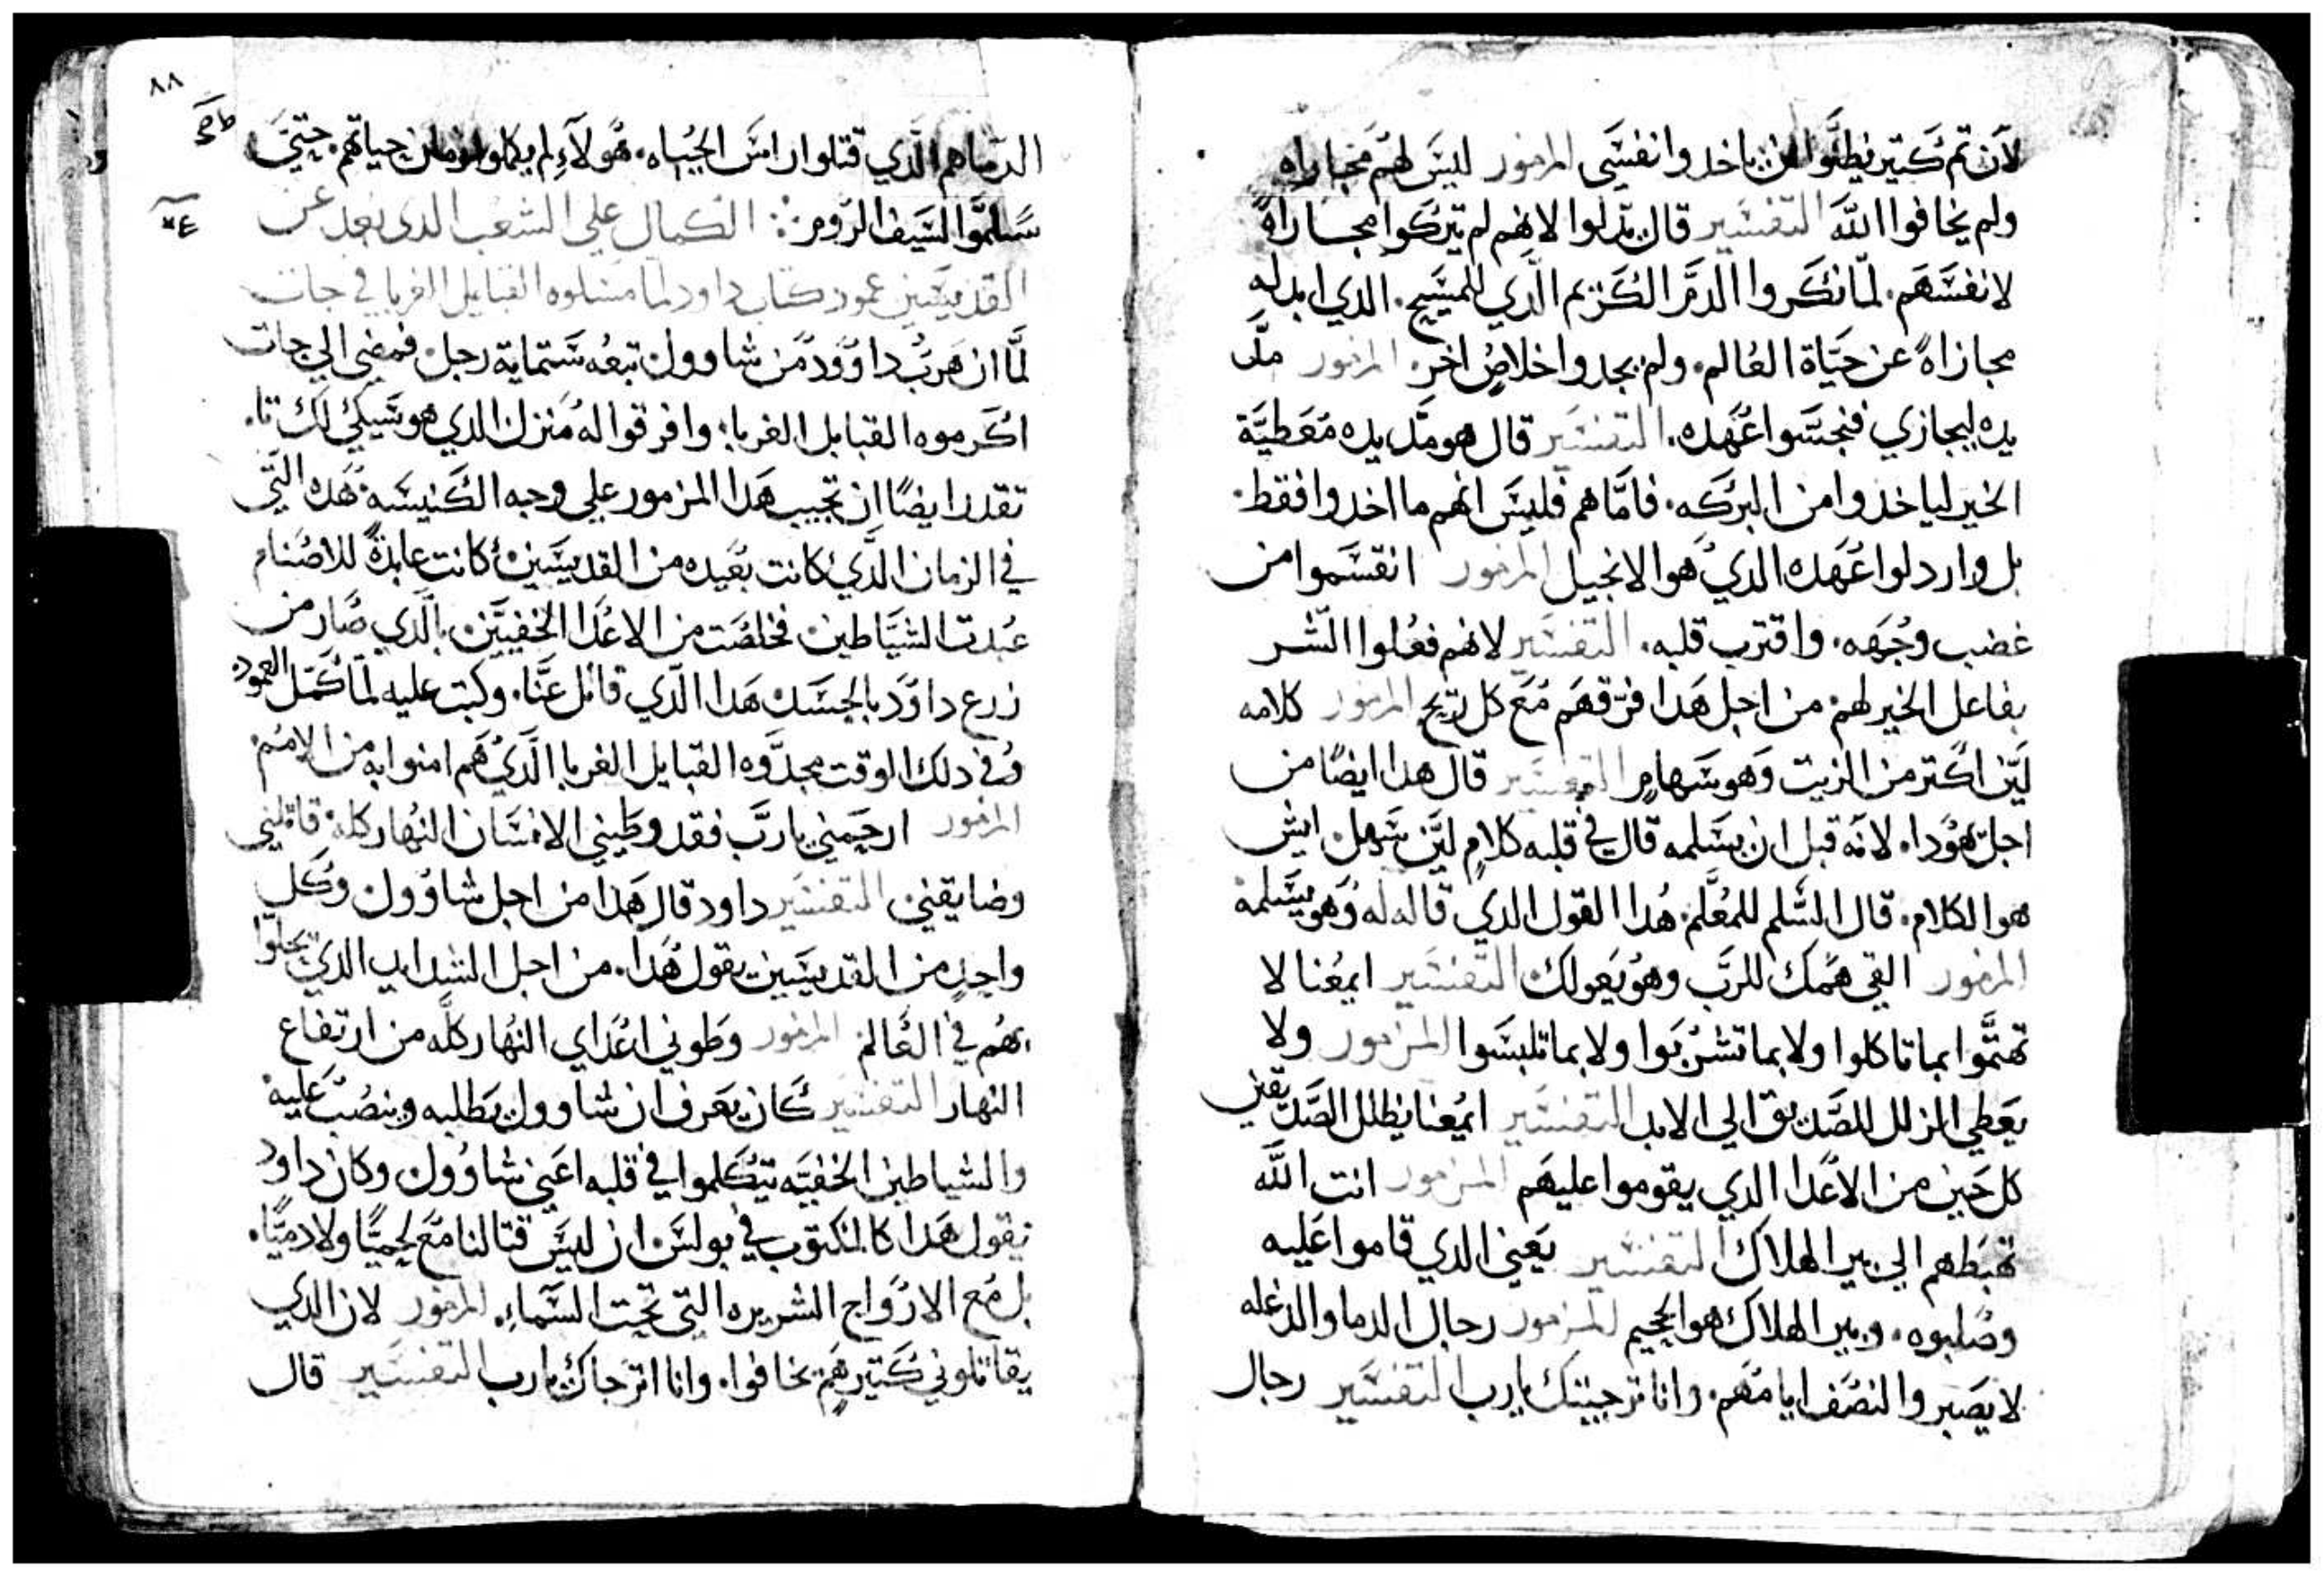 لان تم كتير يطلبوا ان ياخدوا نفسي المزمور ليس لهم مجازاه
ولم يخافوا الله التفسير قال بدلوا لانهم لم يتركوا مجازاةً
لانفسهم. لما نكروا الدم الكريم الدي للمسيح. الدي ابدله
مجازاةً عن حياة العالم. ولم يجدوا خلاصٍ اخر. المزمور مدّ
يده ليجازي فنجسوا عهده. التفسير قال هو مدّ يده معطيّة
الخير لياخدوا من البركه. فامّا هم فليس انهم ما اخدوا فقط.
بل واردلوا عهده الدي هو الانجيل المزمور انقسموا من
غضب وجهه. واقترب قلبه. التفسير لانهم فعلوا الشر
بفاعل الخير لهم من اجل هدا فرّقهم مع كل ريح المزمور كلامه
ليّن اكتر من الزيت وهو سهامٍ التفسير قال هدا ايضًا من
اجل يهودا. لانه قبل ان يسلمه قال في قلبه كلامٍ ليّن سهل ايش
هو الكلام. قال السلم للمعلم. هدا القول الدي قاله له وهو يسلمه
المزمور القي همك للرب وهو يعولك التفسير ايمعنا لا
تهتموا بما تاكلوا ولا بما تشربوا ولا بما تلبسوا المزمور ولا
يعطي الزلل للصديق الي الابد التفسير ايمعنا يظلل الصديقين
كل حين من الاعدا الدي يقوموا عليهم المزمور انت الله
تهبطهم الي بير الهلاك التفسير يعني الدي قاموا عليه
وصلبوه. وبير الهلاك هو الجحيم المزمور رجال الدما والدغله
لا يصبروا لنصف ايامهم. وانا ترجيتك يارب التفسير رجال
٨٨
الدما هم الدي قتلوا راس الحياه. هولآء لم يكملوا زمان حياتهم. حتي
سلموا لسيف الروم: الكمال علي الشعب الدي بعد عن
القديسين عمود كتاب داود لما مسكوه القبايل الغربا في جات
لمّا ان هرب داوود من شاوول تبعه ستماية رجل. فمضي الي جات
اكرموه القبايل الغربا: وافرقوا له منزل الدي هو سيكي لك تا.
تقدر ايضًا ان تجيب هدا المزمور علي وجه الكنيسه. هده التي
في الزمان الدي كانت بعيده من القديسين. كانت عابدةً للاصنام
عبدت الشياطين. فخلصت من الاعدا الخفيين. بالدي صار من
زرع داود بالجسد. هدا الدي قاتل عنّا. وكتب عليه لمّا كمّل العمود.
وفي دلك الوقت مجدوه القبايل الغربا الدي هم امنوا به من الامم.
المزمور ارحمني يارب فقد وطيني الانسان النهار كله. قاتلني
وضايقني التفسير داود قال هدا من اجل شاوول. وكل
واحدٍ من القديسين يقول هدا. من اجل الشدايد الدي تحلوا
بهم في العالم المزمور وطوني اعداي النهار كلّه من ارتفاع
النهار التفسير كان يعرف ان شاوول يطلبه وينصب عليه
والشياطين الخفيه يتكلموا في قلبه اعني شاوول وكان داود
يقول هدا كالمكتوب في بولس. ان ليس قتالنا مع لحميًّا ولا دميًّا.
بل مع الارواح الشريره التي تحت السماء. المزمور لان الدي
يقاتلوني كتير هم يخافوا. وانا اترجاك يارب التفسير قال